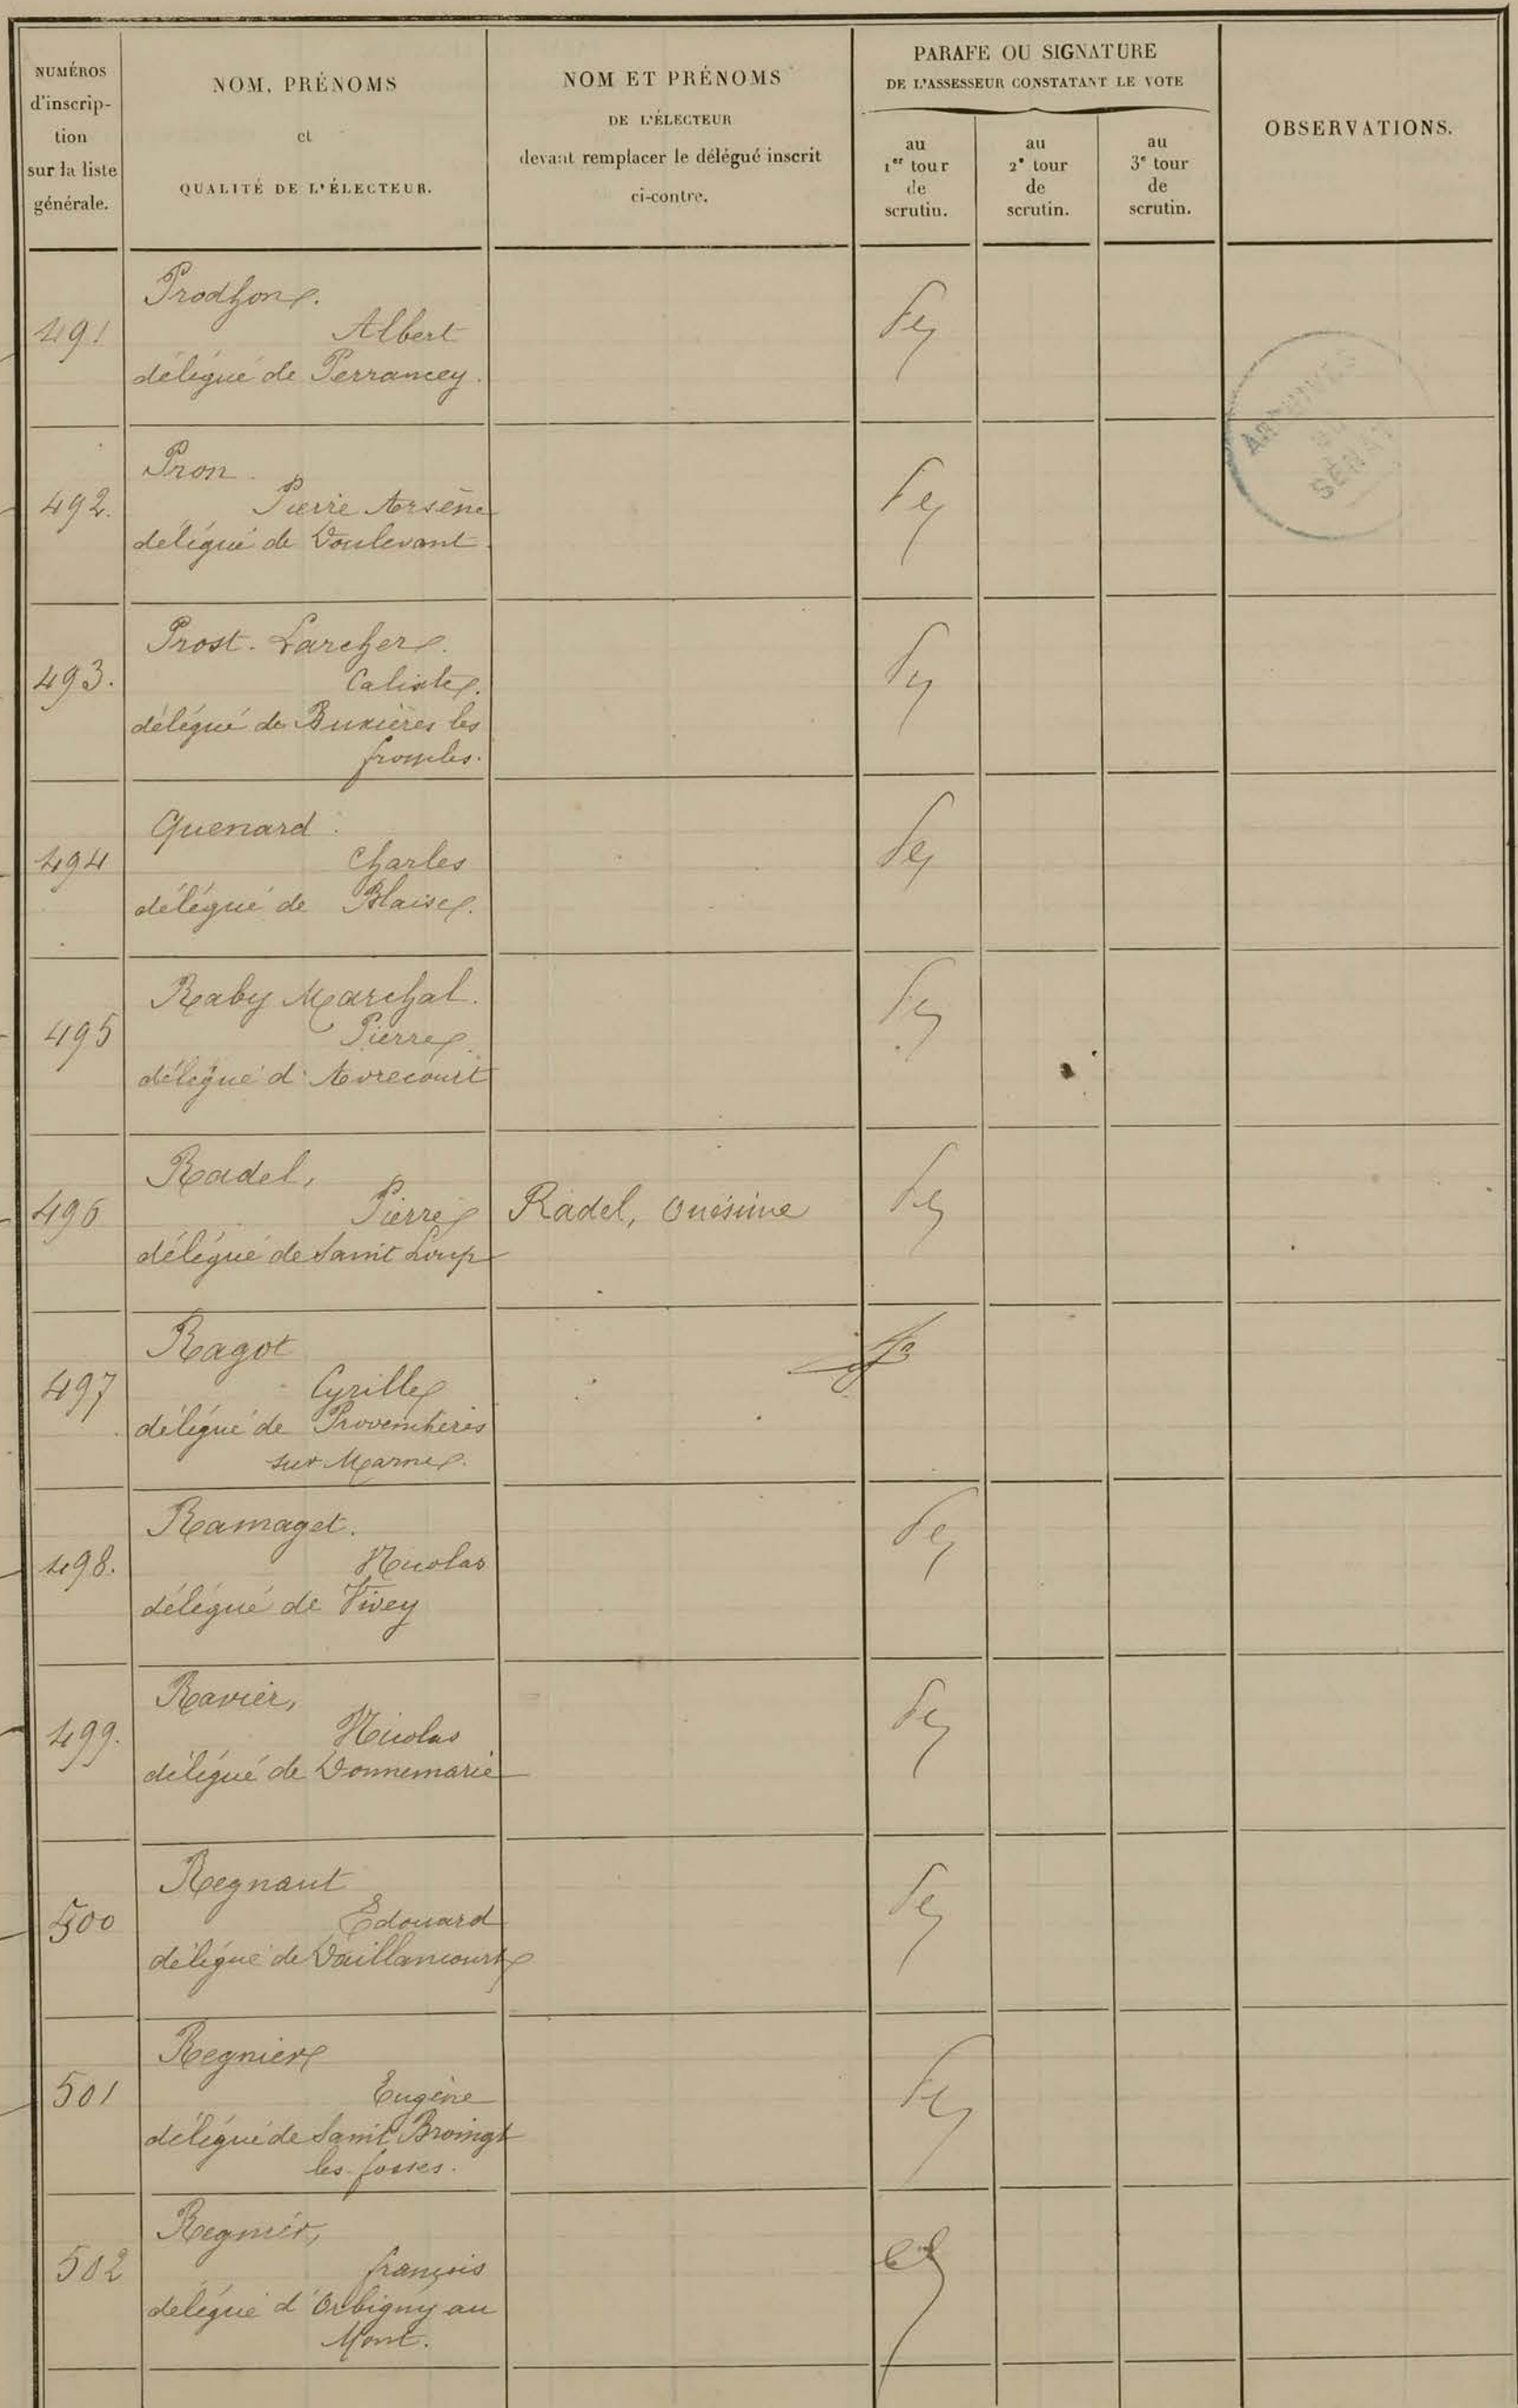 NUMÉROS
d'inscrip-
tion
sur la liste
générale.
NOM, PRÉNOMS
et
QUALITÉ DE L'ÉLECTEUR.
NOM ET PRÉNOMS
DE L'ÉLECTEUR
devant remplacer le délégué inscrit
ci-contre.
PARAFE OU SIGNATURE
DE L'ASSESSEUR CONSTATANT LE VOTE
au
1er tour
de
scrutin.
au
2e tour
de
scrutin.
au
3e tour
de
scrutin.
OBSERVATIONS.
ARCHIVES
DU
SÉNAT
491
Prodhon.
Albert
délégué de Perrancey.
492.
Pron.
Pierre Arsène
délégué de Doulevant.
493.
Prost. Larcher.
Calixte.
délégué de Buxières les
fronles.
494
Quenard.
Charles
délégué de Blaise.
495
Raby Marchal.
Pierre.
délégué d'Avrecourt
496
Radel,
Pierre
délégué de Saint Loup
Radel, Onésime
497
Ragot
Cyrille
délégué de Provenchères
sur Marne.
498.
Ramaget.
Nicolas
délégué de Vivey
499.
Ravier,
Nicolas
délégué de Donnemarie
500
Regnaut
Edouard
délégué de Vaillancourt
501
Regnier
Eugène
délégué de Saint Broingt
les fosses.
502
Regnier,
françois
délégué d'Orbigny au
Mont.